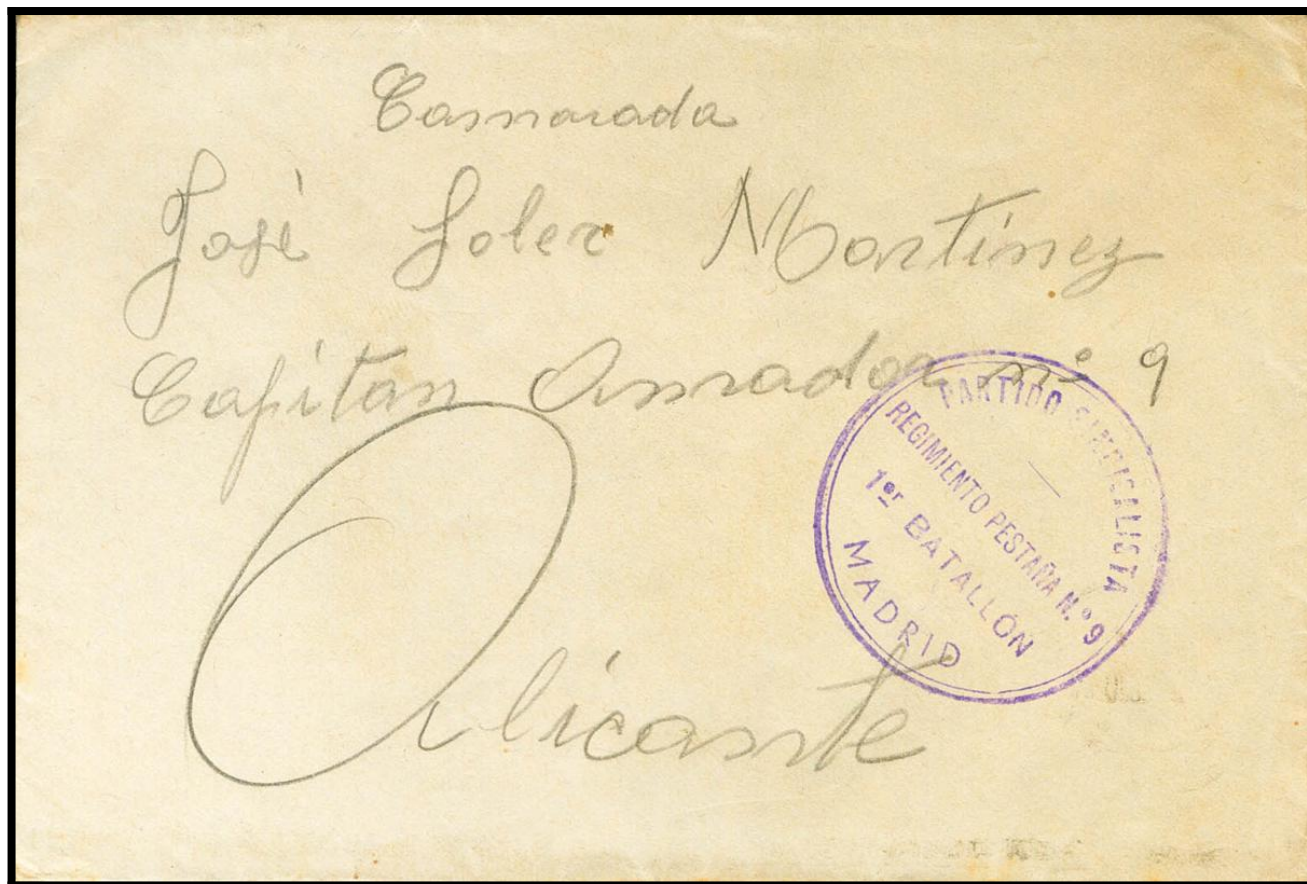 Camarada
José Soler Martínez
Capitan Amador nº 9
PARTIDO SINDICALISTA
REGIMIENTO PESTAÑA N.º 9
1er BATALLÓN
MADRID
Alicante